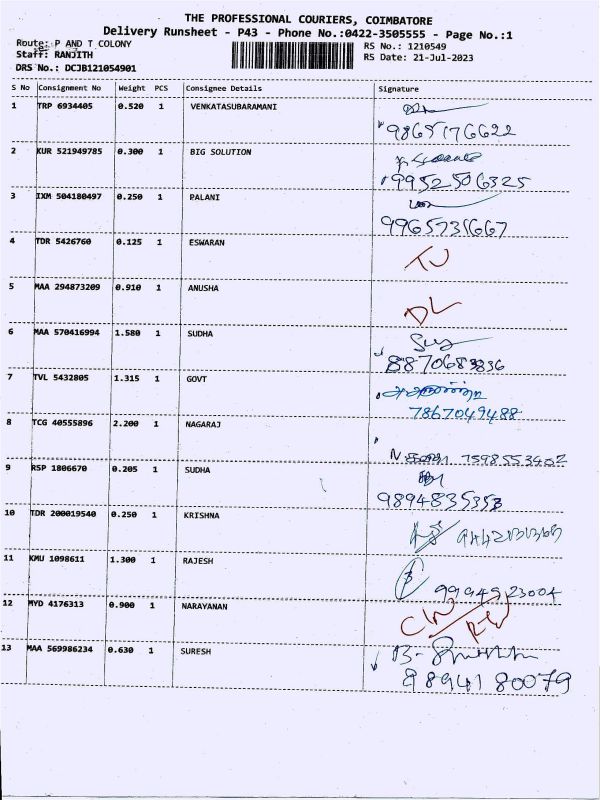 THE PROFESSIONAL COURIERS, COIMBATORE
Delivery Runsheet - P43 - Phone No.:0422-3505555 - Page No.:1
Route: P AND T COLONY
RS No.: 1210549
Staff: RANJITH
RS Date: 21-Jul-2023
DRS No.: DCJB121054901
S No Consignment No Weight PCS Consignee Details Signature
1 TRP 6934405 0.520 1 VENKATASUBARAMANI
9865176622
2 KUR 521949785 0.300 1 BIG SOLUTION
9952506325
3 IXM 504180497 0.250 1 PALANI
9965731667
4 TDR 5426760 0.125 1 ESWARAN
5 MAA 294873209 0.910 1 ANUSHA
DL
6 MAA 570416994 1.580 1 SUDHA
8870683836
7 TVL 5432805 1.315 1 GOVT
7867049488
8 TCG 40555896 2.200 1 NAGARAJ
7598553402
9 RSP 1806670 0.205 1 SUDHA
9894835353
10 TDR 200019540 0.250 1 KRISHNA
11 KMU 1098611 1.300 1 RAJESH
9994923004
12 MYD 4176313 0.900 1 NARAYANAN
13 MAA 569986234 0.630 1 SURESH
9894180079